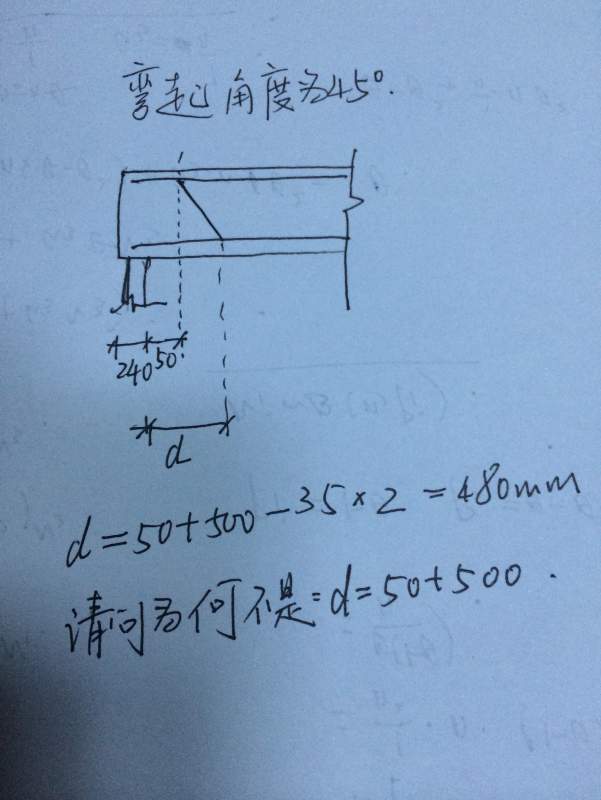 弯起角度为45°.
240 50
d
d=50+500-35×2=480mm
请问为何不是:d=50+500.